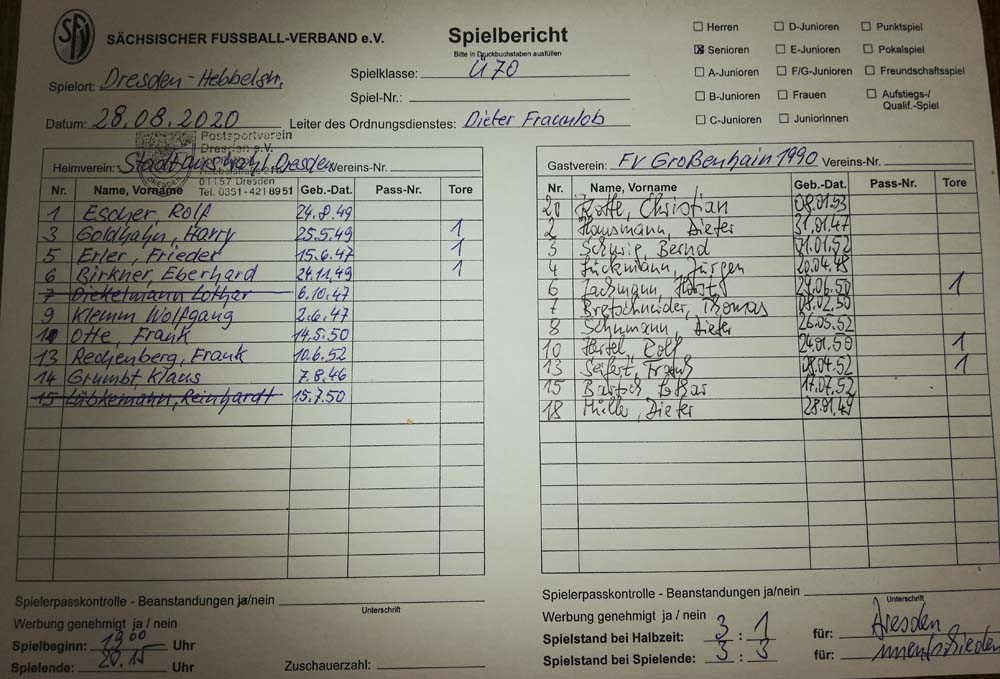 SFV
SÄCHSISCHER FUSSBALL-VERBAND e.V.
Spielbericht
Bitte in Druckbuchstaben ausfüllen
Herren D-Junioren Punktspiel
Senioren E-Junioren Pokalspiel
A-Junioren F/G-Junioren Freundschaftsspiel
B-Junioren Frauen Aufstiegs-/Qualif.-Spiel
C-Junioren Juniorinnen
Spielort: Dresden-Hebbelstr.
Spielklasse: Ü70
Spiel-Nr.:
Datum: 28.08.2020 Leiter des Ordnungsdienstes: Dieter Fraunlob
Postsportverein
Dresden e.V.
01157 Dresden
Tel. 0351-421 8951
Heimverein: Stadtauswahl Dresden Vereins-Nr.
Nr. Name, Vorname Geb.-Dat. Pass-Nr. Tore
1 Escher, Rolf 24.8.49
3 Goldhahn, Harry 25.5.49 1
5 Erler, Frieder 15.6.47 1
6 Birkner, Eberhard 24.11.49 1
7 Diekelmann Lothar 6.10.47
9 Klemm Wolfgang 2.6.47
Otte, Frank 14.5.50
13 Rechenberg, Frank 10.6.52
14 Grumbt, Klaus 7.8.46
15 Lübkemann, Reinhardt 15.7.50
Spielerpasskontrolle - Beanstandungen ja/nein
Unterschrift
Werbung genehmigt ja / nein
Spielbeginn: 19.00 Uhr
Spielende: 20.15 Uhr
Zuschauerzahl:
Gastverein: FV Großenhain 1990 Vereins-Nr.
Nr. Name, Vorname Geb.-Dat. Pass-Nr. Tore
20 Rotte, Christian 08.01.53
2 Hausmann, Dieter 31.01.47
3 Schurig, Bernd 01.01.52
4 Lückmann, Jürgen 20.04.48
6 Lachmann, Horst 29.06.50 1
7 Bretschneider, Thomas 08.02.50
8 Schumann, Dieter 26.05.52
10 Härtel, Rolf 24.01.50 1
13 Seifert, Frank 08.04.52 1
15 Bartsch Lothar 17.07.52
18 Müller, Dieter 28.01.49
Spielerpasskontrolle - Beanstandungen ja/nein
Unterschrift
Werbung genehmigt ja / nein
Spielstand bei Halbzeit: 3 : 1 für: Dresden
Spielstand bei Spielende: 3 : 3 für: unentschieden